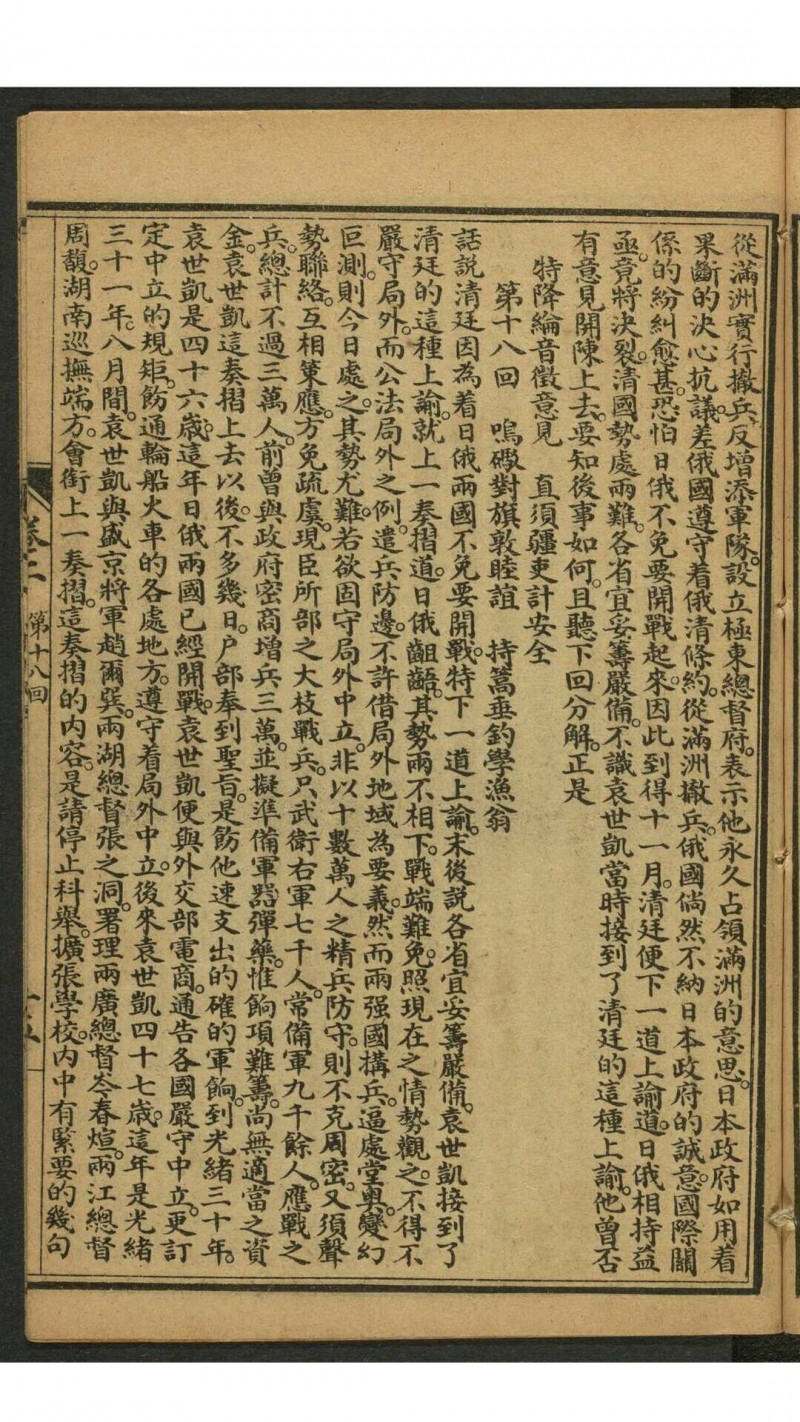 從滿洲實行撤兵。反增添軍隊。設立極東總督府。表示他永久占領滿洲的意思。日本政府如用着
果斷的決心抗議。差俄國遵守着俄清條約。從滿洲撤兵。俄國倘然不納日本政府的誠意。國際關
係的紛糾愈甚。恐怕日俄不免要開戰起來。因此到得十一月。清廷便下一道上諭道。日俄相持益
亟。竟將決裂。清國勢處兩難。各省宜妥籌嚴備。不識袁世凱當時接到了清廷的這種上諭。他曾否
有意見開陳上去。要知後事如何。且聽下回分解。正是
特降綸音徵意見　直須疆吏計安全
第十八回　鳴礮對旗敦睦誼　持篙垂釣學漁翁
話說清廷因為着日俄兩國不免要開戰。特下一道上諭。末後説各省宜妥籌嚴備。袁世凱接到了
清廷的這種上諭。就上一奏摺道。日俄齟齬。其勢兩不相下。戰端難免。照現在之情勢觀之。不得不
嚴守局外。而公法局外之例。遣兵防邊。不許借局外地域為要義。然而兩强國搆兵。逼處堂奧。變幻
叵測。則今日處之。其勢尤難。若欲固守局外中立。非以十數萬人之精兵防守。則不克周密。又須聲
勢聯絡。互相策應。方免疏虞。現臣所部之大枝戰兵。只武衛右軍七千人。常備軍九千餘人。應戰之
兵。總計不過三萬人。前曾與政府密商增兵三萬。並擬準備軍器彈藥。惟餉項難籌。尚無適當之資
金。袁世凱這奏摺上去以後。不多幾日。户部奉到聖旨。是飭他速支出的確的軍餉。到光緒三十年。
袁世凱是四十六歲。這年日俄兩國已經開戰。袁世凱便與外交部電商。通告各國嚴守中立。更訂
定中立的規矩。飭通輪船火車的各處地方。遵守着局外中立。後來袁世凱四十七歲。這年是光緒
三十一年。八月間。袁世凱與盛京將軍趙爾巽。兩湖總督張之洞。署理兩廣總督岑春煊。兩江總督
周馥。湖南巡撫端方。會銜上一奏摺。這奏摺的內容。是請停止科舉。擴張學校。內中有緊要的幾句
卷二　第十八回